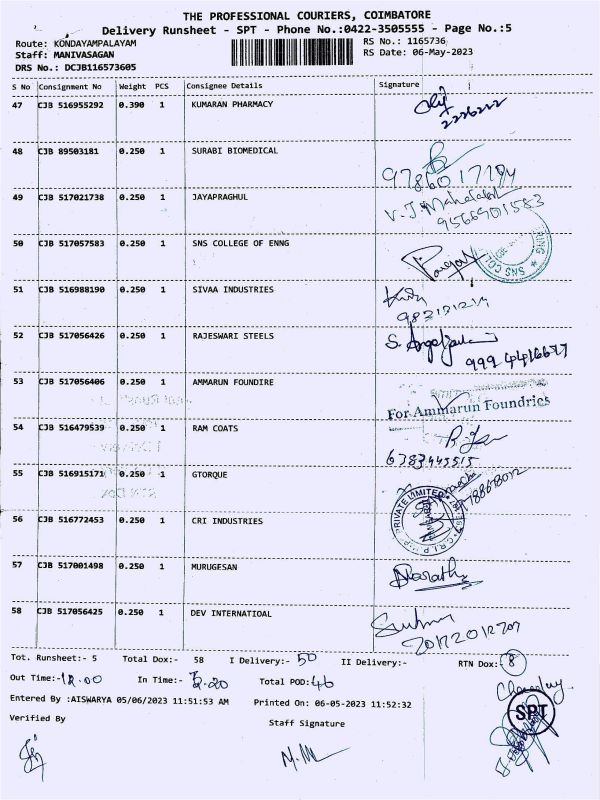 THE PROFESSIONAL COURIERS, COIMBATORE
Delivery Runsheet - SPT - Phone No.:0422-3505555 - Page No.:5
Route: KONDAYAMPALAYAM RS No.: 1165736
Staff: MANIVASAGAN RS Date: 06-May-2023
DRS No.: DCJB116573605
S No Consignment No Weight PCS Consignee Details Signature
47 CJB 516955292 0.390 1 KUMARAN PHARMACY
48 CJB 89503181 0.250 1 SURABI BIOMEDICAL
49 CJB 517021738 0.250 1 JAYAPRAGHUL
50 CJB 517057583 0.250 1 SNS COLLEGE OF ENNG
51 CJB 516988190 0.250 1 SIVAA INDUSTRIES
52 CJB 517056426 0.250 1 RAJESWARI STEELS
53 CJB 517056406 0.250 1 AMMARUN FOUNDIRE
For Ammarun Foundries
54 CJB 516479539 0.250 1 RAM COATS
6383445515
55 CJB 516915171 0.250 1 GTORQUE
PRIVATE LIMITED
56 CJB 516772453 0.250 1 CRI INDUSTRIES
57 CJB 517001498 0.250 1 MURUGESAN
58 CJB 517056425 0.250 1 DEV INTERNATIOAL
Tot. Runsheet:- 5 Total Dox:- 58 I Delivery:- 50 II Delivery:- RTN Dox: 8
Out Time:- 12.00 In Time:- 5.20 Total POD: 46
Entered By :AISWARYA 05/06/2023 11:51:53 AM Printed On: 06-05-2023 11:52:32
Verified By Staff Signature
SPT